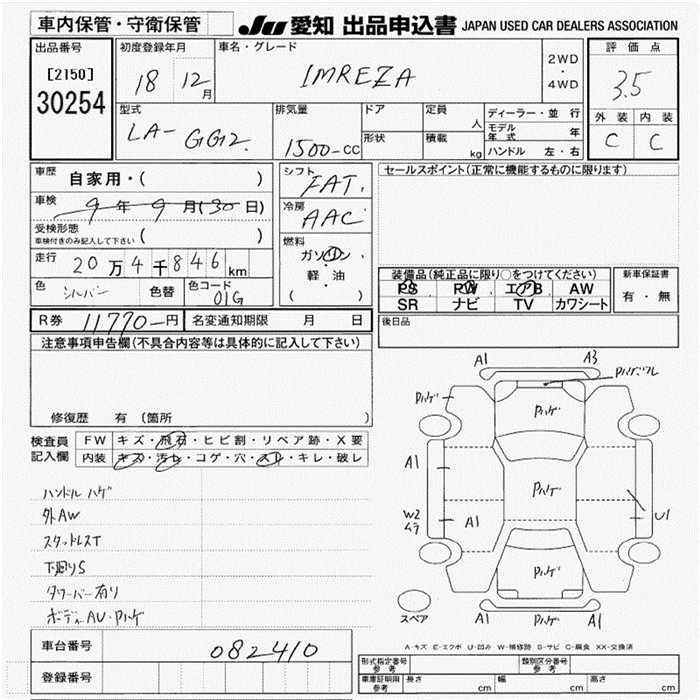 車内保管・守衛保管 JU 愛知 出品申込書 JAPAN USED CAR DEALERS ASSOCIATION
出品番号 初度登録年月 車名・グレード 評価点
[2150] 18 12月 IMREZA 2WD・4WD 3.5
30254
型式 排気量 ドア 定員 ディーラー・並 行 外装 内装
LA-GG2. 1500-CC 人 モデル年式 年 C C
形状 積載 kg ハンドル 左・右
車歴 自家用・( ) シフト FAT. セールスポイント(正常に機能するものに限ります)
車検 9年9月(30日) 冷房 AAC
受検形態 車検付きのみ記入して下さい ( ) 燃料
走行 20万4千846km ガソリン
軽・油
( )
色 シルバン 色替 色コード 01G
装備品(純正品に限り○をつけてください) 新車保証書
PS PW エアB AW 有・無
SR ナビ TV カワシート
R券 11770-円 名変通知期限 月 日 後日品
注意事項申告欄(不具合内容等は具体的に記入して下さい)
修復歴 有(箇所
検査員記入欄 FW キズ・飛石・ヒビ割・リペア跡・X要
内装 キズ・汚レ・コゲ・穴・スレ・キレ・破レ
ハンドル ハゲ
外AW
スタットレスT
下廻りS
タワーバー有り
ボディAU・Pハゲ
A1 A3
Pハゲワレ
Pハゲ Pハゲ
A1 Pハゲ
W2 ムラ A1 U1
Pハゲ
スペア A1 Pハゲ A1
A-キズ E-エクボ U-凹み W-補修跡 S-サビ C-腐食 XX-交換済
車台番号 082410
登録番号
形式指定番号 参考 類別区分番号 参考
車庫証明用 参考 長さ cm 幅 cm 高さ cm